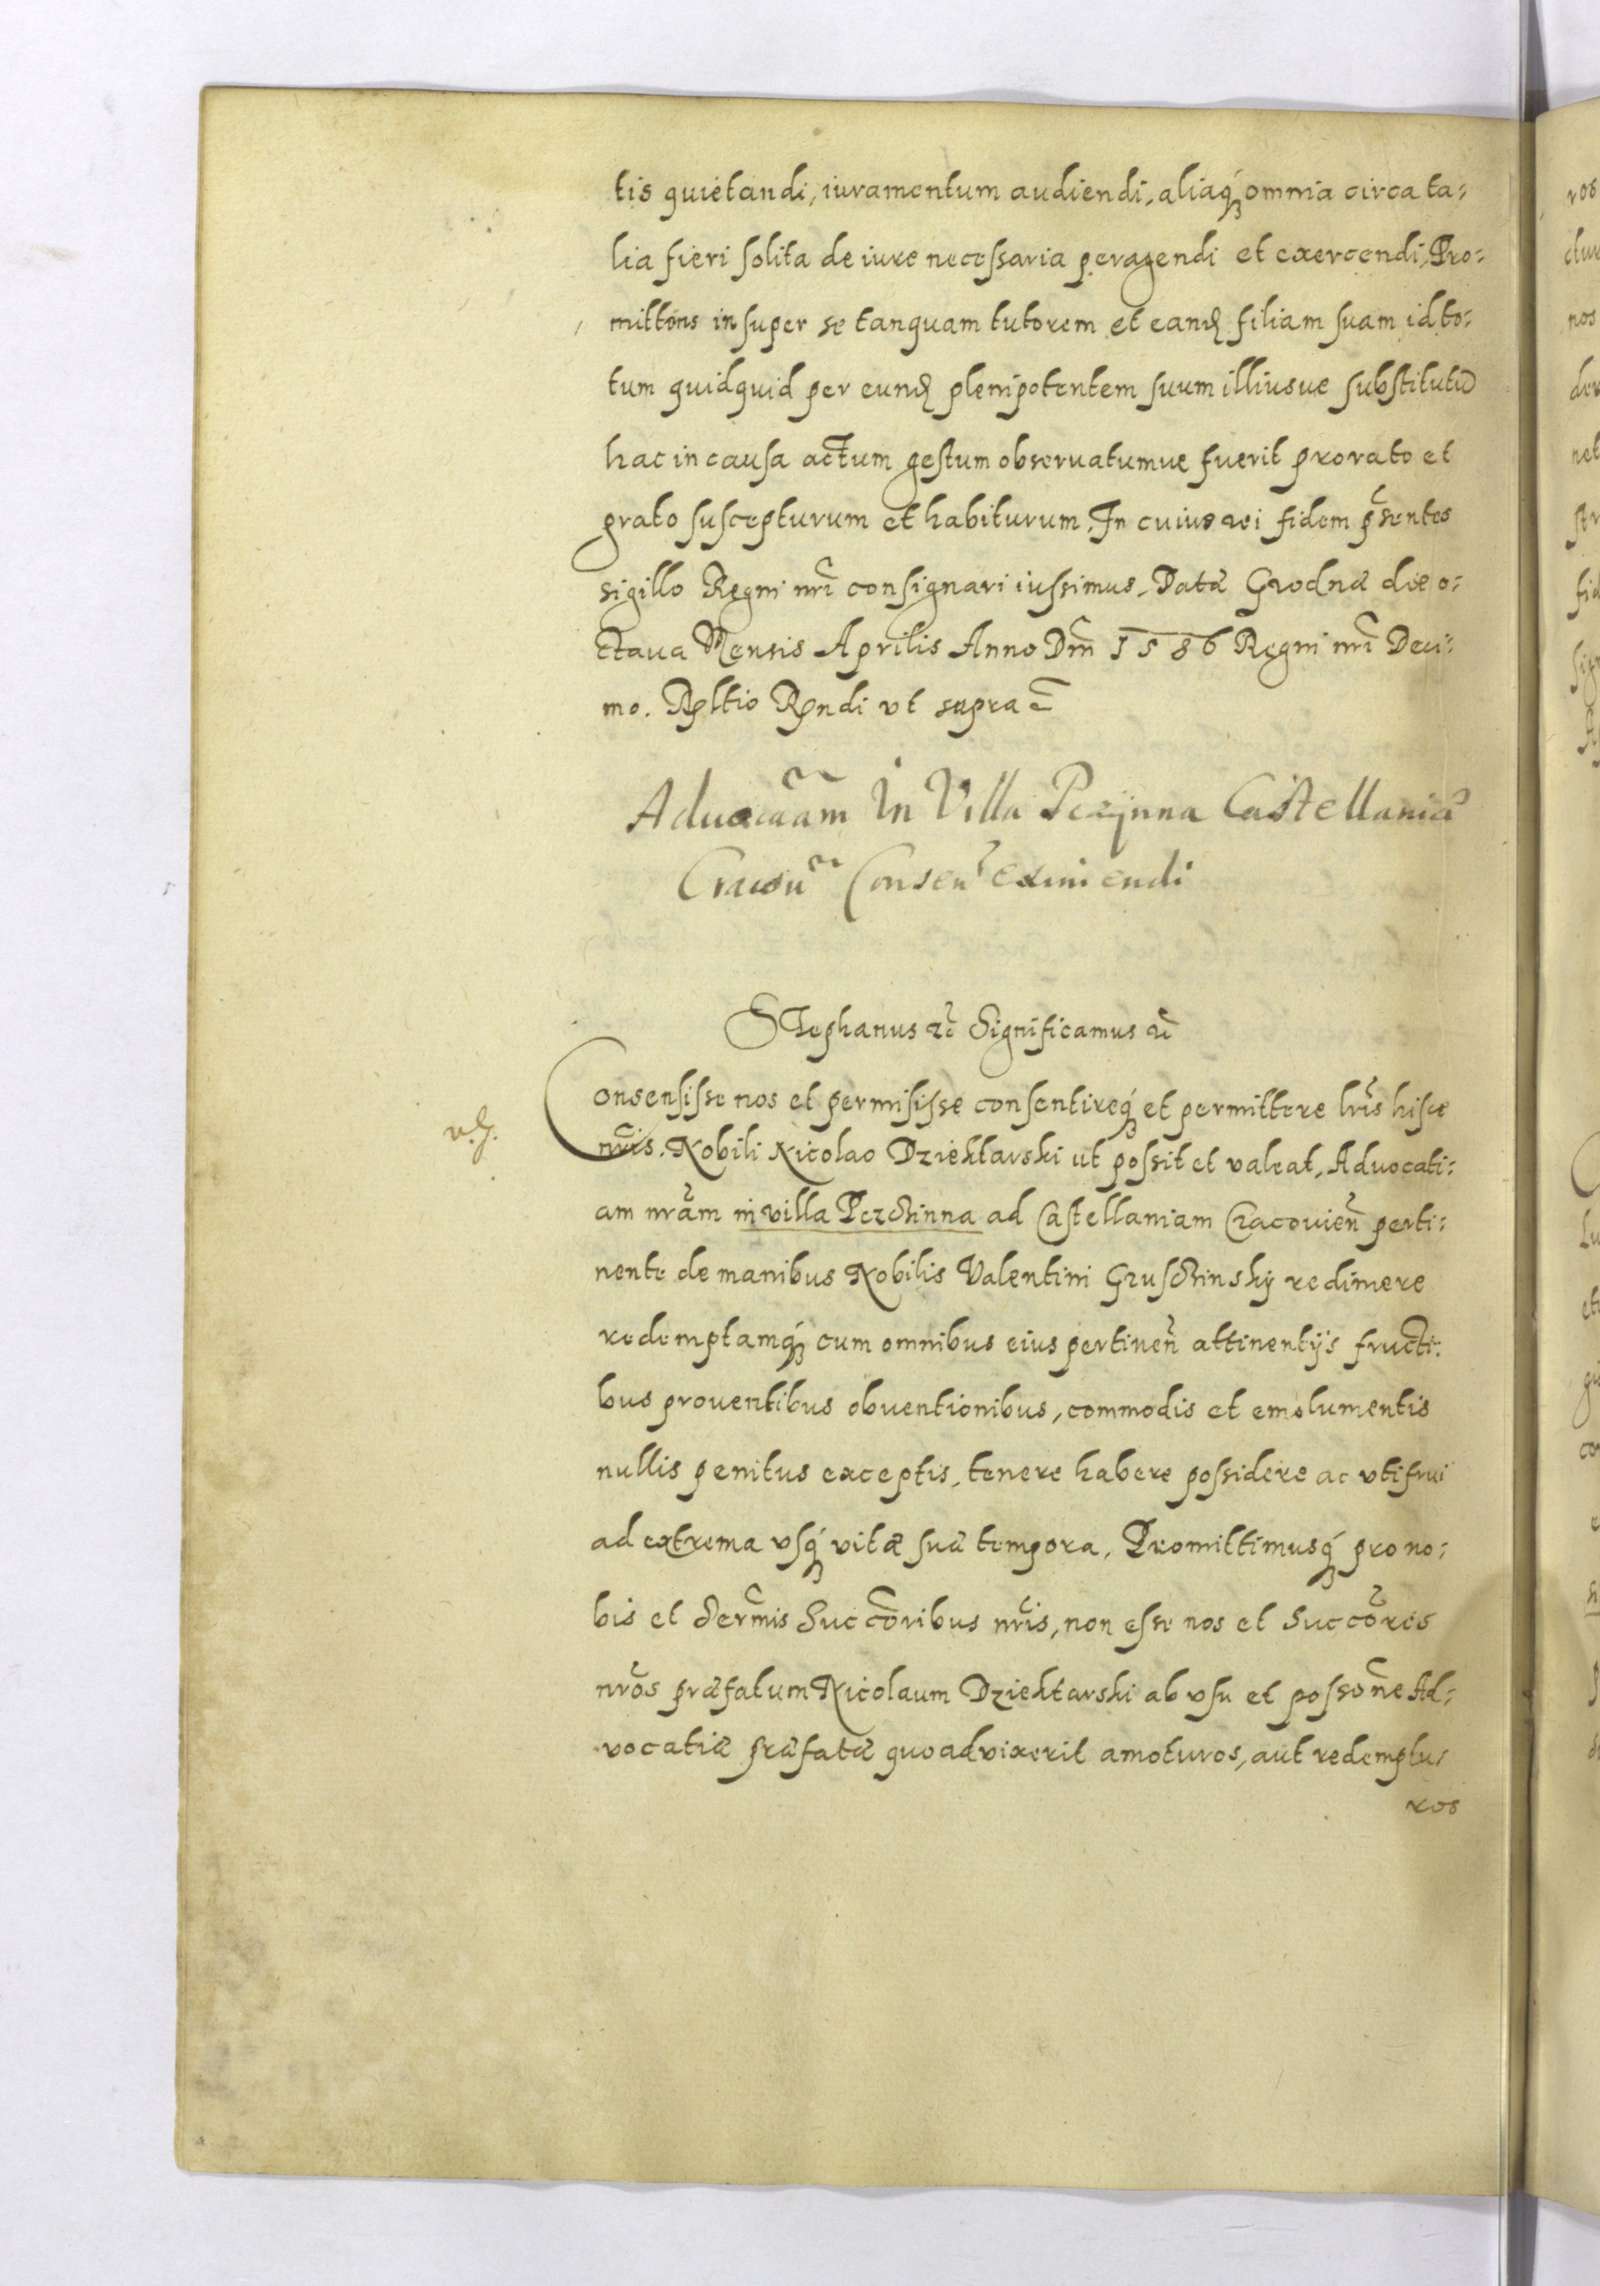 tis quietandi, iuramentum audiendi, aliaq́ omnia circa ta-
lia fieri solita de iure necessaria peragendi et exercendi, Pro-
mittens insuper se tanquam tutorem et eand filiam suam id to-
tum quidquid per eund plenipotentem suum illiusue substitutū
hac in causa actum gestum obseruatumue fuerit pro rato et
grato suscepturum et habiturum. In cuius rei fidem pn̄sentes
sigillo Regni nr̄i consignari iussimus. Datæ Grodnæ die o-
ctaua Mensis Aprilis Anno Dnī 1586 Regni nr̄i Deci-
mo. Rltio Rndi vt supra
Aduocaām In Villa Pczÿnna Castellaniæ
Cracou Consen Eximendi
Stephanus rc̄ Significamus rc̄
Consensisse nos et permisisse consentireq́ et permittere lr̄is hisce
nr̄is. Nobili Nicolao Dziektarski ut possit et valeat, Aduocati-
am nrām in villa Pczchinna ad Castellaniam Cracouien̄ perti-
nente de manibus Nobilis Valentini Gruschinskÿ redimere
redemptamq́ cum omnibus eius pertinen̄ attinentÿs fructi-
bus prouentibus obuentionibus, commodis et emolumentis
nullis penitus exceptis, tenere habere possidere ac vti frui
ad extrema vsq́ vitæ suæ tempora. Promittimusq́ pro no-
bis et Serm̄is Succōribus nr̄is, non esse nos et Succōres
nrōs præfatum Nicolaum Dziektarski ab vsu et possōne Ad-
vocatiæ præfatæ quoad vixerit amoturos, aut redemptu-
ros